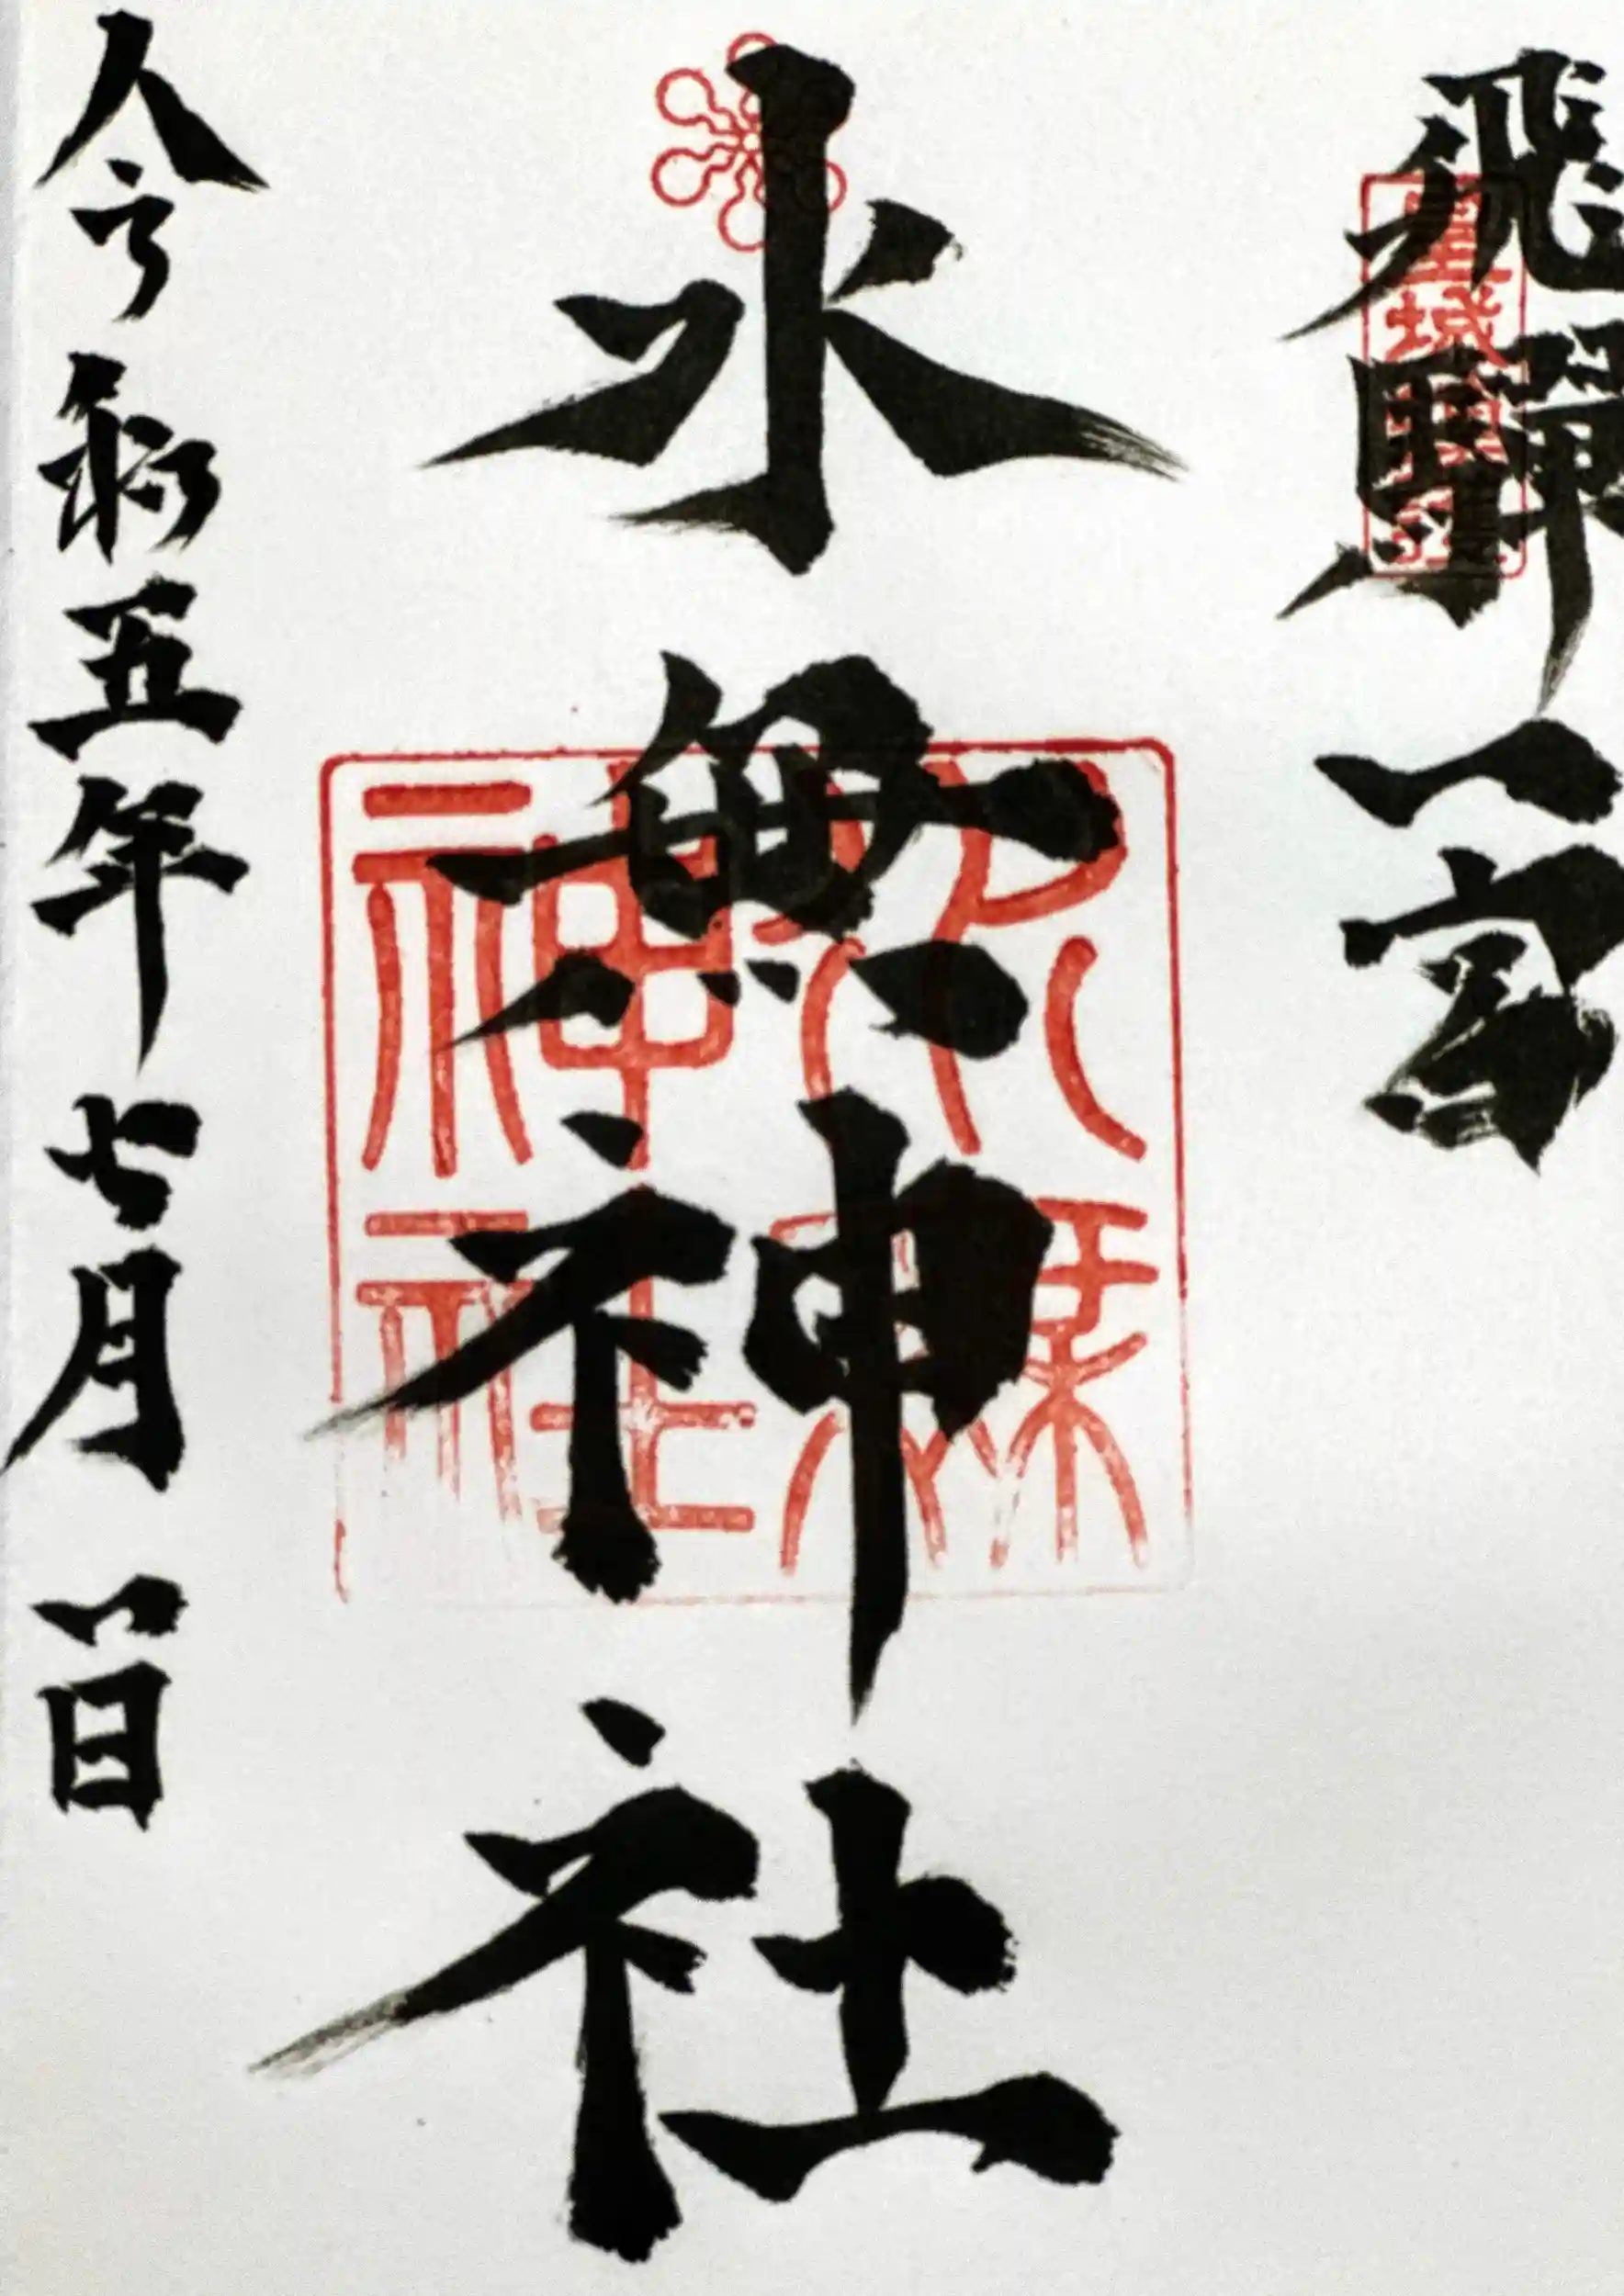 飛驒一宮
水無神社
水無神社
令和五年七月一日